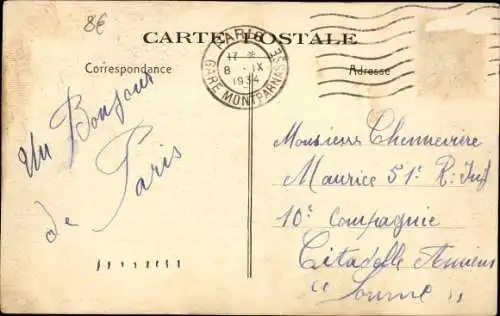 8€
CARTE POSTALE
PARIS
17 *
8 - IX
1934
GARE MONTPARNASSE
Correspondance
Adresse
Un Bonjour
de Paris
Monsieur Chennevière
Maurice 51e R. Inf
10e Compagnie
Citadelle Amiens
"Somme"